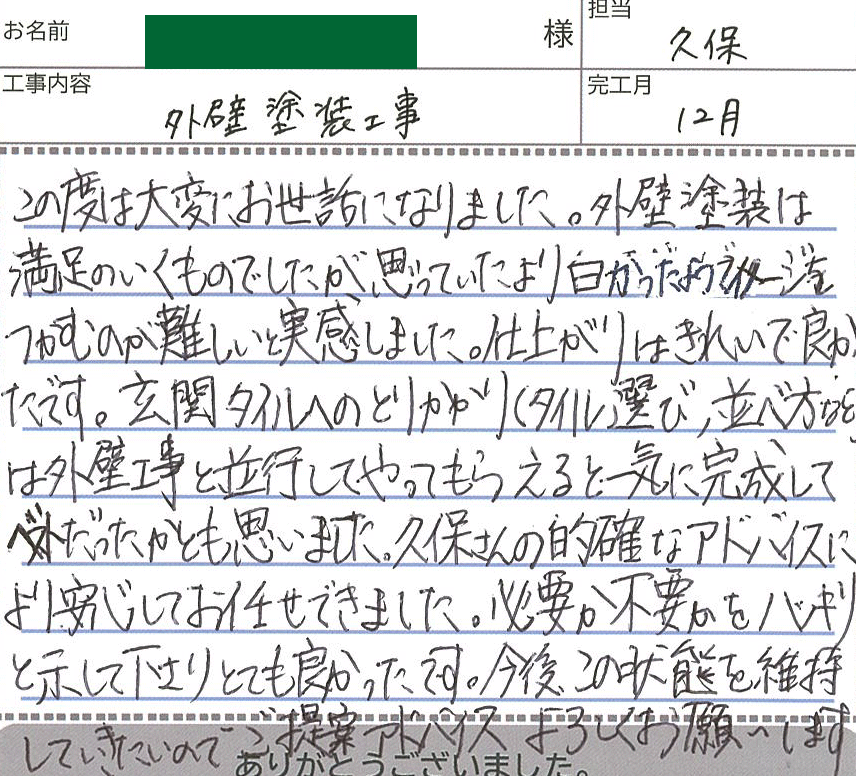 お名前 様 担当 久保
工事内容 外壁塗装工事 完工月 12月
この度は大変にお世話になりました。外壁塗装は
満足のいくものでしたが、思っていたより白がったようでイメージを
つかむのが難しいと実感しました。仕上がりはきれいで良か
たです。玄関タイルへのとりかかり(タイル選び、並べ方など
は外壁工事と並行してやってもらえると一気に完成して
ベストだったかとも思いました。久保さんの的確なアドバイスに
より安心してお任せできました。必要か不要かをハッキリ
と示して下さりとても良かったです。今後、この状態を維持
していきたいのでご提案アドバイスよろしくお願いします
ありがとうございました。